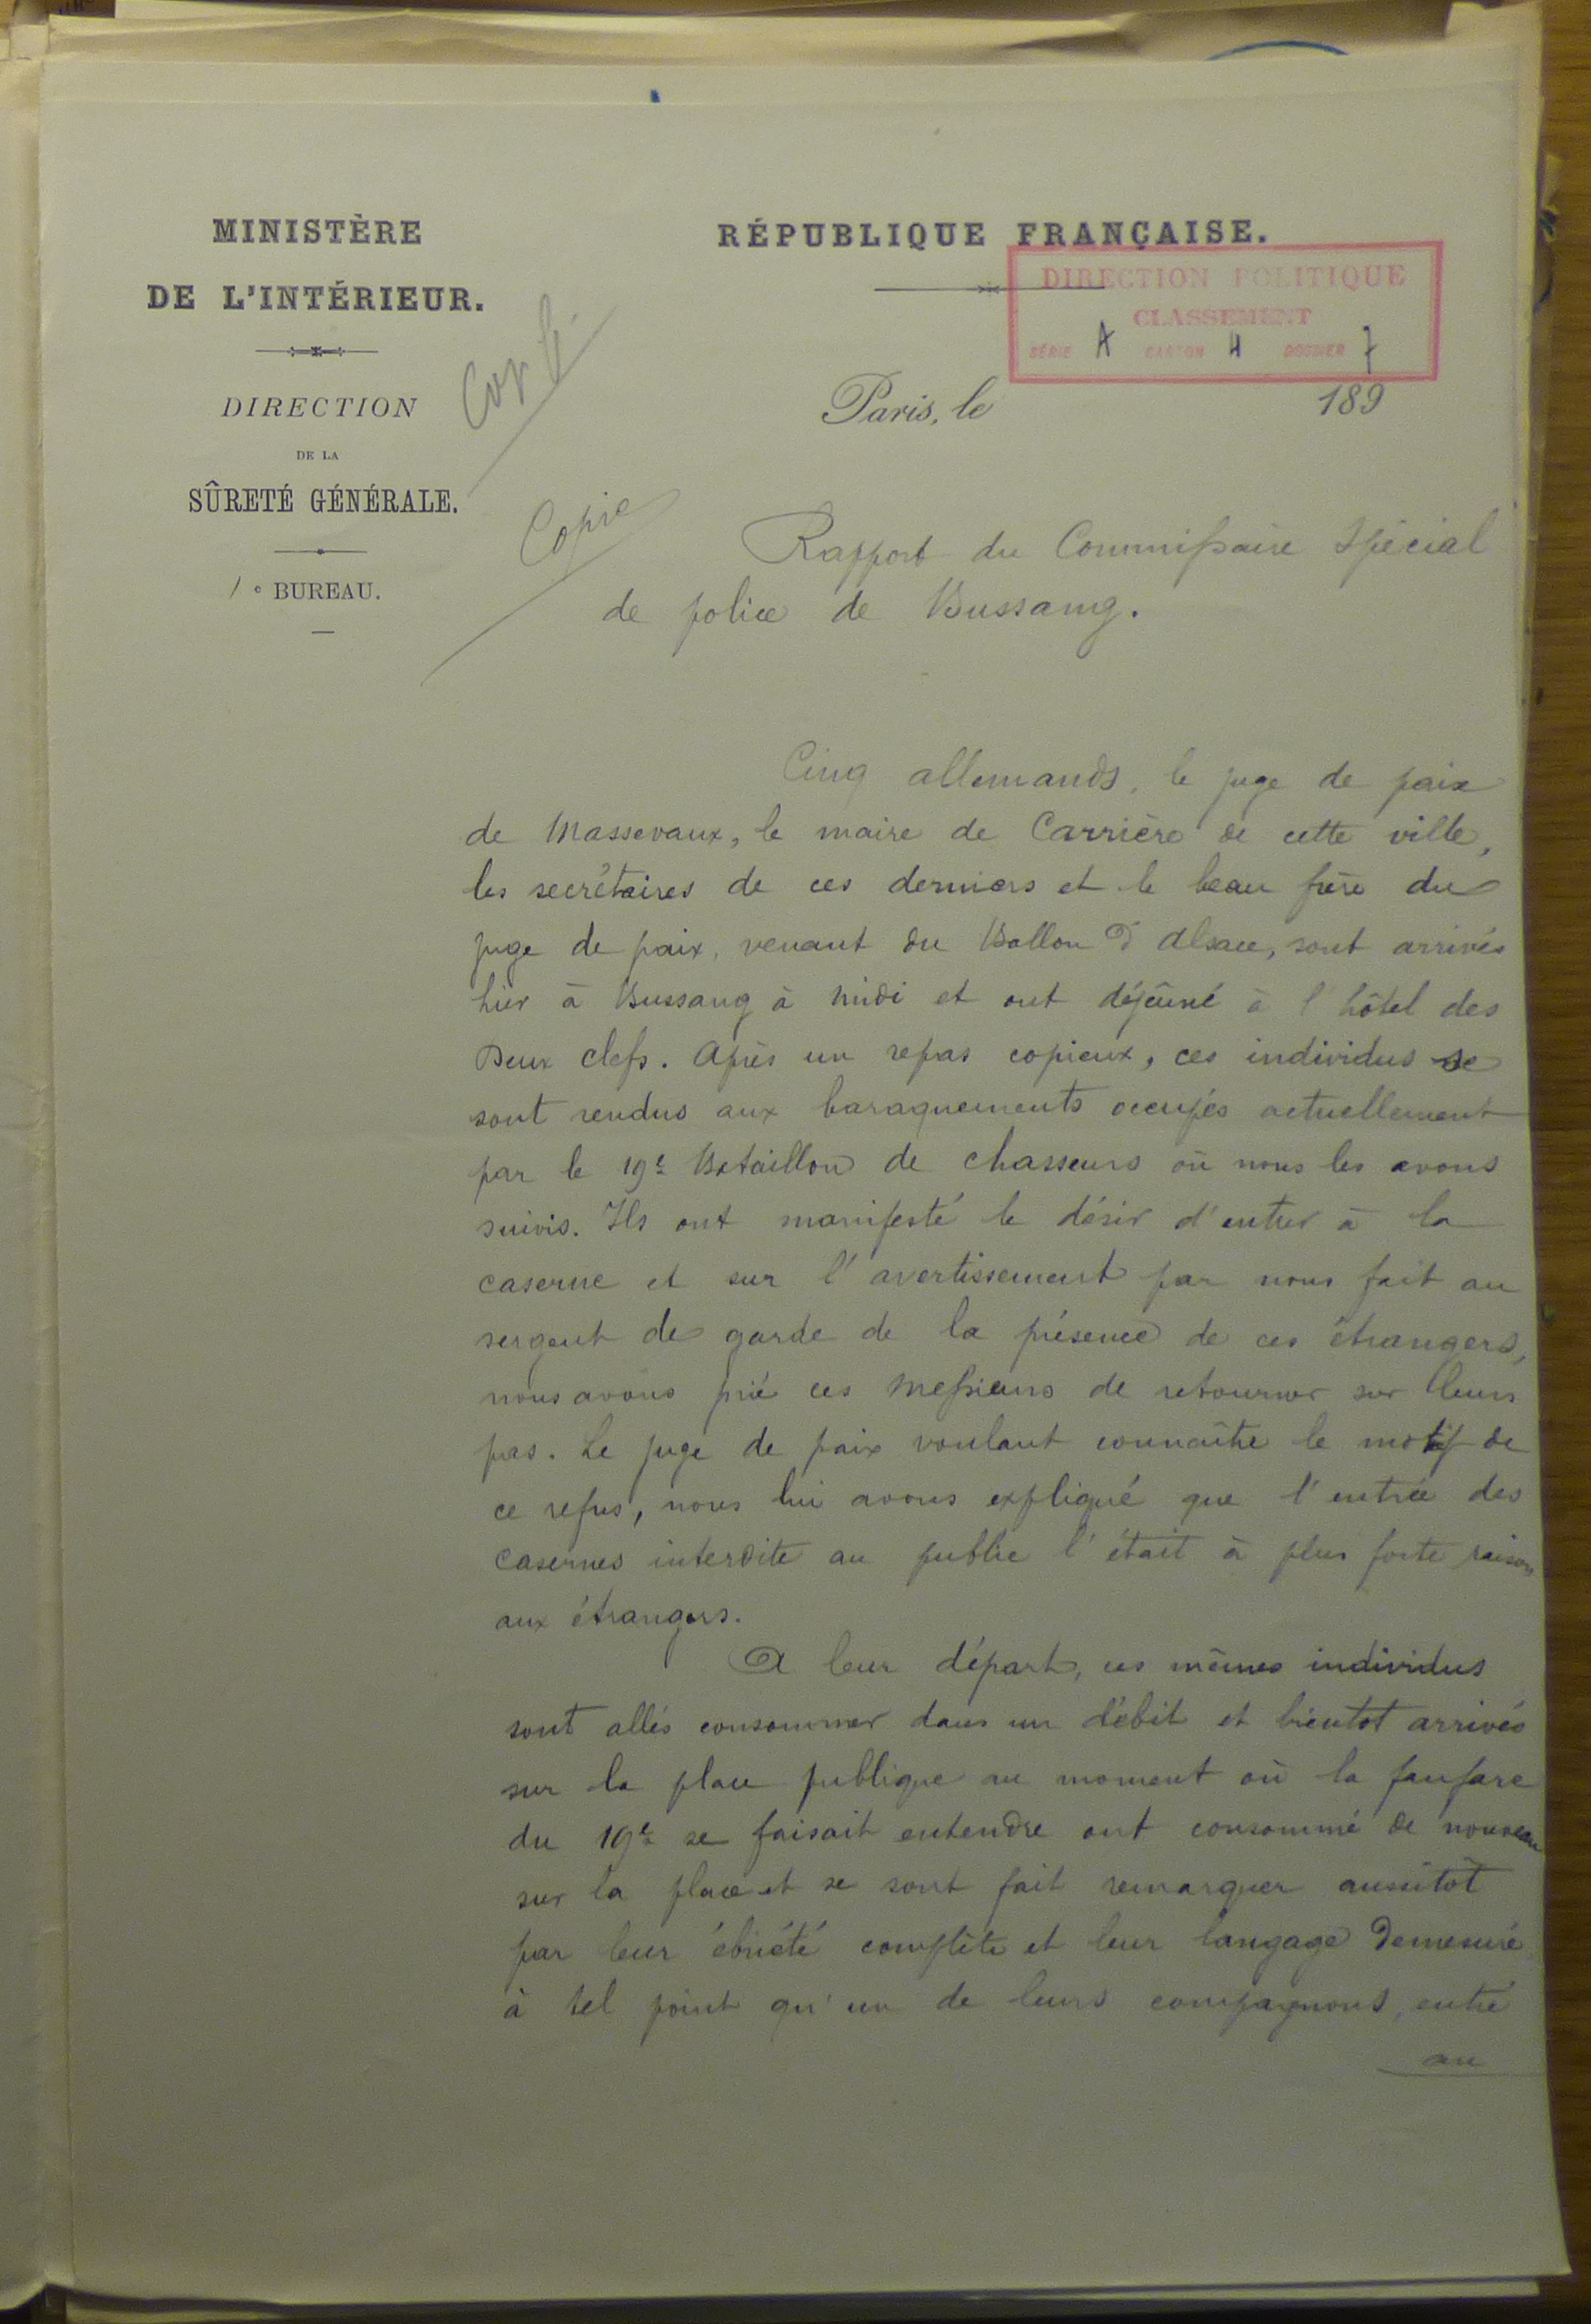 MINISTÈRE
DE L'INTÉRIEUR.
DIRECTION
DE LA
SÛRETÉ GÉNÉRALE.
1e BUREAU.
RÉPUBLIQUE FRANÇAISE.
DIRECTION POLITIQUE
CLASSEMENT
SÉRIE A CARTON 4 DOSSIER 7
Paris, le 189
Copie
Rapport du Commissaire Spécial
de police de Bussang.
Cinq allemands, le juge de paix
de Massevaux, le maire de Carrière de cette ville,
les secrétaires de ces derniers et le beau frère du
juge de paix, venant du Ballon d'alsace, sont arrivés
hier à Bussang à midi et ont déjeuné à l'hôtel des
Deux clefs. Après un repas copieux, ces individus se
sont rendus aux baraquements occupés actuellement
par le 19e Bataillon de chasseurs où nous les avons
suivis. Ils ont manifesté le désir d'entrer à la
caserne et sur l'avertissement par nous fait au
sergent de garde de la présence de ces étrangers,
nous avons prié ces Messieurs de retourner sur leurs
pas. Le juge de paix voulant connaître le motif de
ce refus, nous lui avons expliqué que l'entrée des
casernes interdite au public l'était à plus forte raison
aux étrangers.
A leur départ, ces mêmes individus
sont allés consommer dans un débit et bientot arrivés
sur la place publique au moment où la fanfare
du 19e se faisait entendre ont consommé de nouveau
sur la place et se sont fait remarquer aussitôt
par leur ébriété complète et leur langage demesuré
à tel point qu'un de leurs compagnons, entré
au